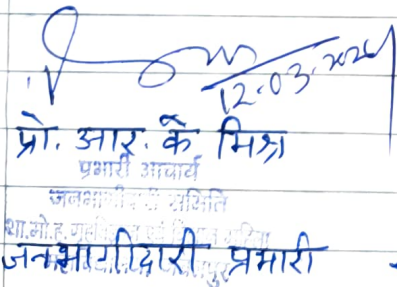 12.03.2026
प्रो. आर. के मिश्रा
प्रभारी आचार्य
जनभागीदारी समिति
शा.मो.ह.
जनभागीदारी प्रभारी